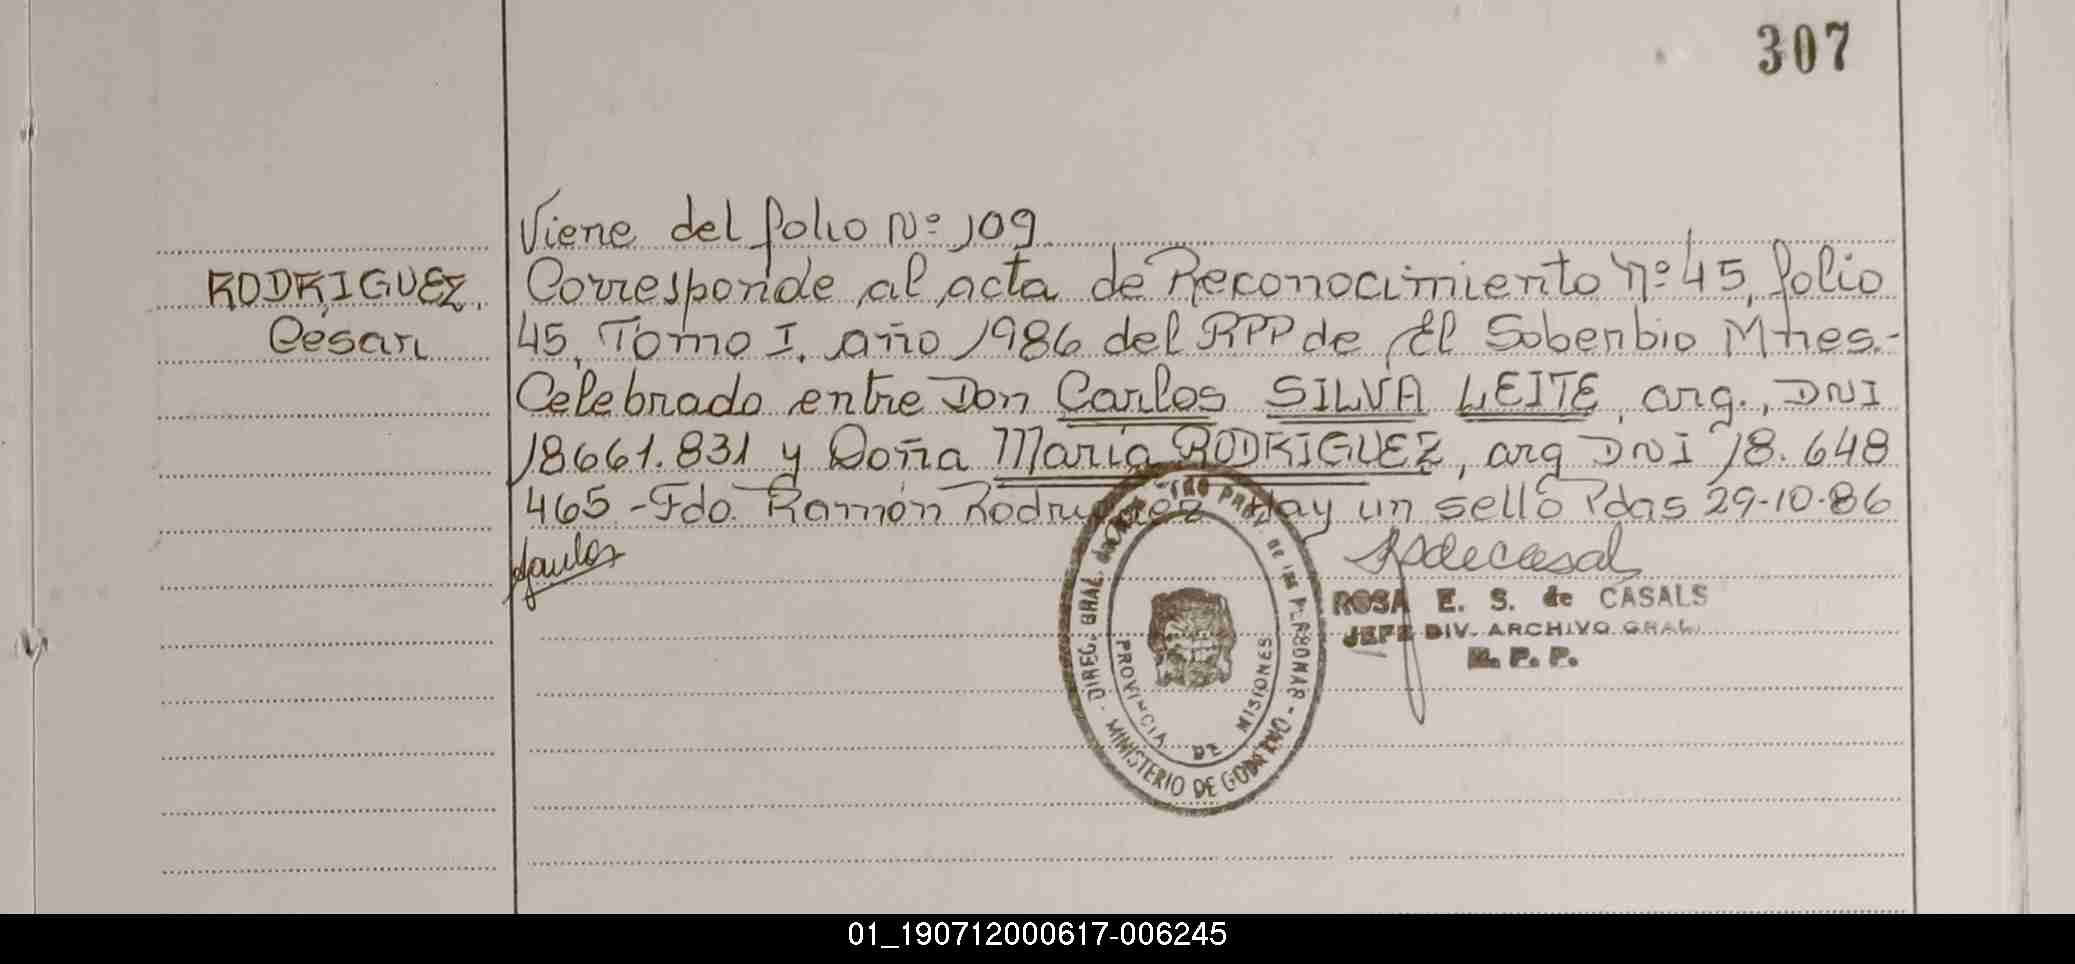 307
Viene del folio Nº 109
RODRIGUEZ,
Cesar
Corresponde al acta de Reconocimiento Nº 45, folio
45, Tomo I, año 1986 del RPP de El Soberbio Mnes.-
Celebrado entre Don Carlos SILVA LEITE, arg., DNI
18661.831 y Doña María RODRIGUEZ, arg DNI 18.648
465 - Fdo. Ramón Rodriguez Hay un sello Pdas 29-10-86
ROSA E. S. de CASALS
JEFE DIV. ARCHIVO GRAL.
R. P. P.
DIREC. GRAL. DE LAS PERSONAS
MINISTERIO DE GOBIERNO
PROVINCIA DE MISIONES
01_190712000617-006245